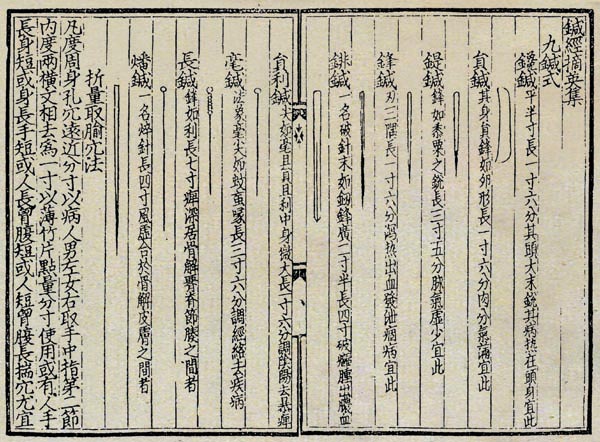 鍼經摘英集
九鍼式
鑱鍼平半寸長一寸六分其頭大末銳其病熱在頭身宜此
員鍼其身員鋒如卵形長一寸六分肉分氣滿宜此
鍉鍼鋒如黍粟之銳長三寸五分脉氣虛少宜此
鋒鍼刃三隅長一寸六分瀉熱出血發泄痼病宜此
鈹鍼一名破針末如劒鋒廣二寸半長四寸破癰腫出膿血
員利鍼尖如毫且員且利中身微大長一寸六分調陰陽去暴痺
毫鍼法象毫尖如蚊虻喙長三寸六分調經絡去疾病
長鍼鋒如利長七寸痺深居骨解腰脊節腠之間者
燔鍼一名焠針長四寸風虛合於骨解皮膚之間者
折量取腧穴法
凡度周身孔穴遠近分寸以病人男左女右取手中指第二節
內度兩橫文相去爲一寸以薄竹片點量分寸使用或有人手
長身短或身長手短或人長胷腹短或人短胷腹長揣穴尤宜